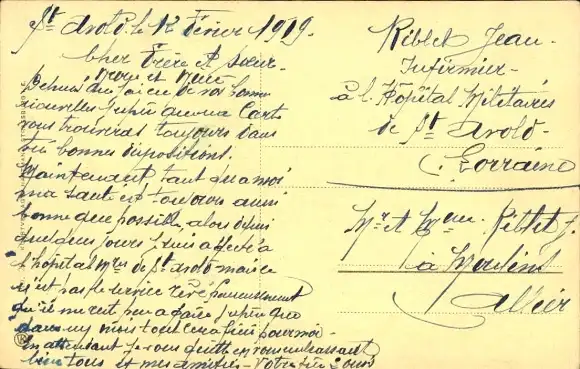 St Avold le 12 Février 1919.
Cher Frère et Sœur
Neveu et Nièce
Depuis que j'ai eu de vos bonnes
nouvelles j'espère que ma Carte
vous trouveras toujours dans
bonnes dispositions.
Maintenant tant qu'a moi
ma santé est toujours aussi
bonne que possible, alors depuis
quelques jours je suis affecté à
l'hôpital Mre de St Avold mais ce
n'est pas le service rêvé heureusement
qu'il me reste peu a faire j'espère que
dans un mois tout sera fini pour moi
En attendant je vous quitte en vous embrassant
bien tous et mes amitiés - Votre
Riblet Jean -
Infirmier -
à l'Hôpital Militaires
de St Avold -
(Lorraine
Mr et Mme Riblet J.
à Moulins
Allier